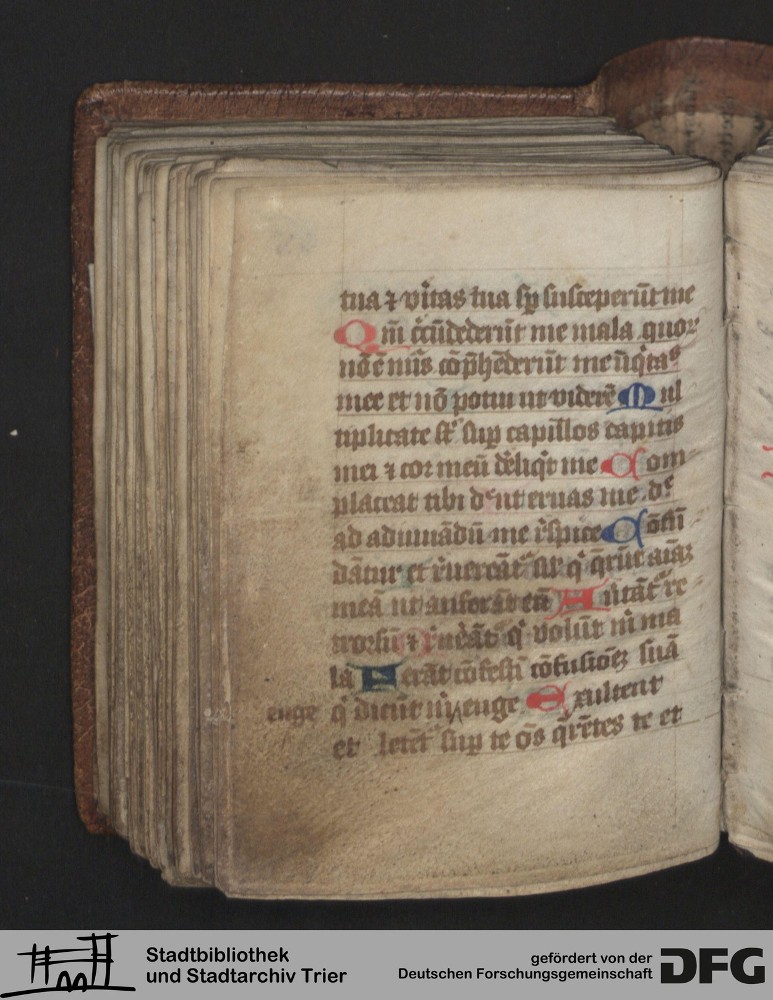 tua ⁊ vitas tua sp̄ susceperūt me
Qm̄ c̄cūdederūt me mala quoꝝ
nō ē nūs cōp̄hēderūt me īiq̇tas
mee et nō potui ut viderē Mul
tiplicate st̄ sup capillos capitis
mei ⁊ cor meū dēliq̇t me Com
placeat tibi dn̄e ut eruas me dn̄e
ad adiuuādū me r̄spice Cōfū
dātur et r̄uereāt̄ sil̄ q̇ q̄rūt aīaꝫ
meā ut auferāt eā Aūtāt̄ re
trorsū ⁊ r̄ueāt̄ q̇ volūt m̄ ma
la Ferāt cōfestī cōfusioēꝫ suā
q̇ dicūt m̄ euge Exultent
euge
et letēt̄ sup te oēs q̄rētes te et
Stadtbibliothek
und Stadtarchiv Trier
gefördert von der
Deutschen Forschungsgemeinschaft
DFG